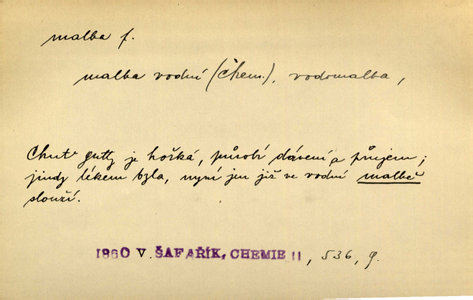 malba f.
malba vodní (Chem.), vodomalba,
Chuť gutty je hořká, působí dávení a průjem;
jindy lékem byla, nyní jen již ve vodní malbě
slouží.
1860 V. ŠAFAŘÍK, CHEMIE II, 536, 9.